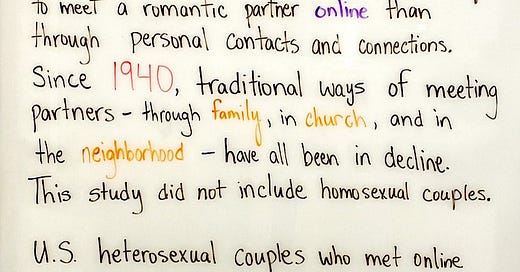 to meet a romantic partner online than
through personal contacts and connections.
Since 1940, traditional ways of meeting
partners - through family, in church, and in
the neighborhood - have all been in decline.
This study did not include homosexual couples.
U.S. heterosexual couples who met online